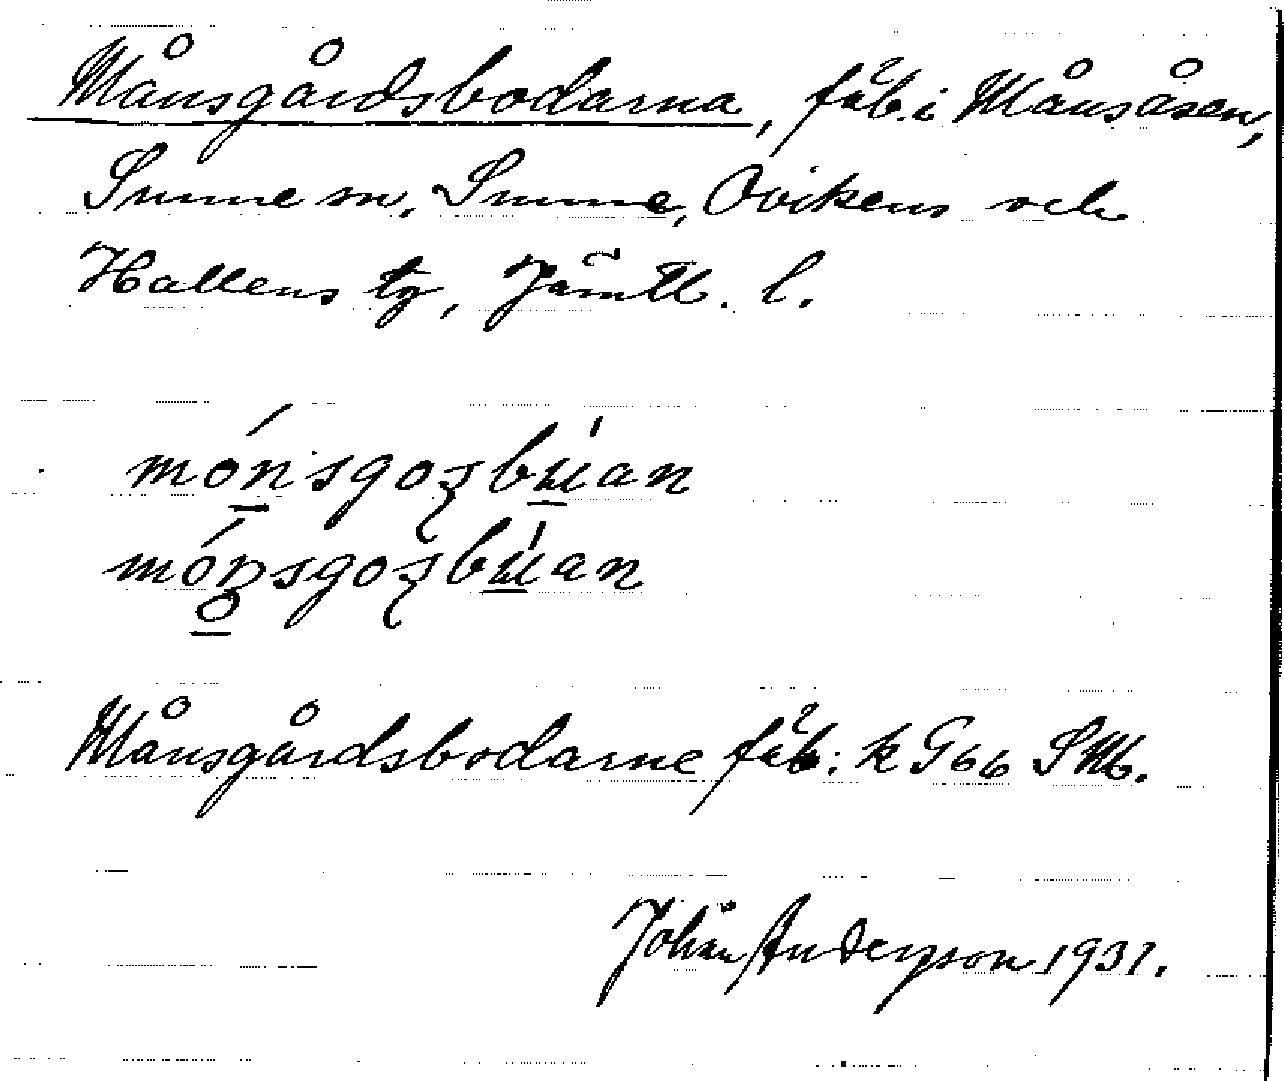 Månsgårdsbodarna, fäb. i Månsåsen,
Sunne sn, Sunne, Ovikens och
Hallens tg, Jämtl. l.
Månsgårdsbodarne fäb: k G66 SMb.
Johan Anderson 1931.